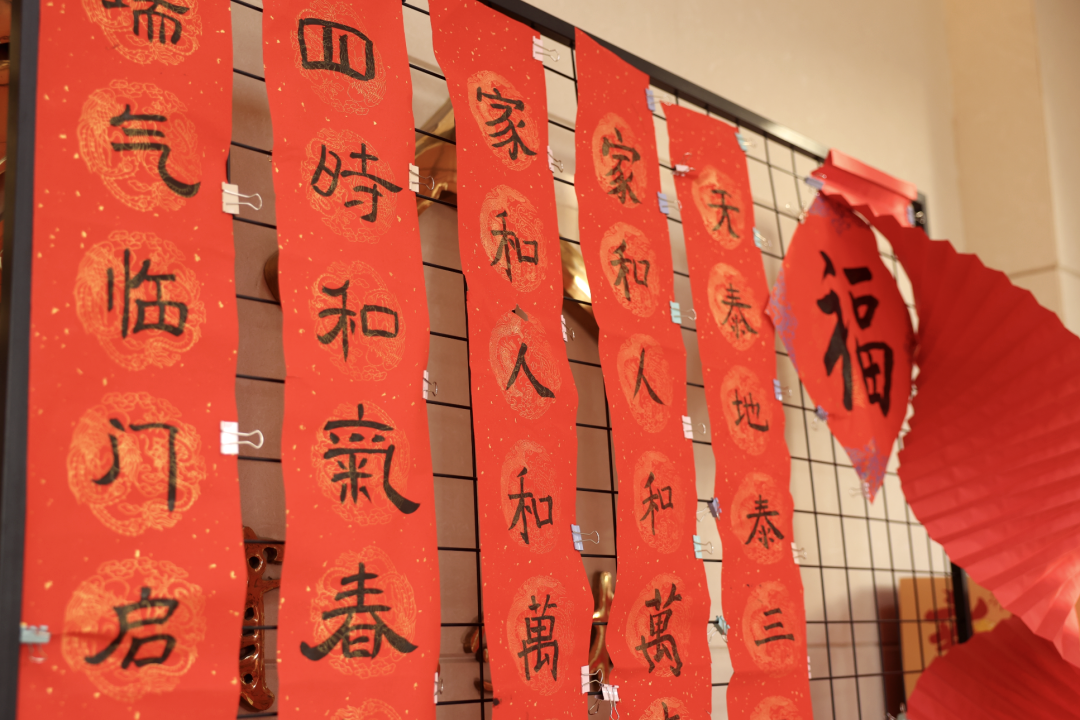 瑞气临门启
四時和氣春
家和人和萬
家和人和萬
天泰地泰三
福